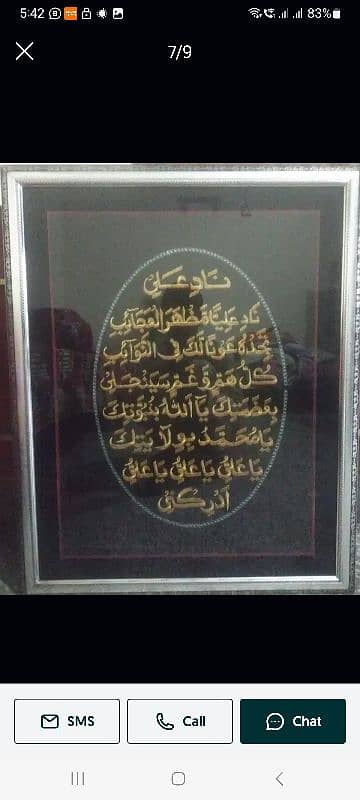 5:42
83%
7/9
ناد علی
ناد علیا مظهر العجایب
تجده عونا لك فی النوآئب
كل هم و غم سینجلی
بعظمتك یا الله بنبوتك
یا محمد بولایتك
یا علی یا علی یا علی
ادركنی
SMS
Call
Chat